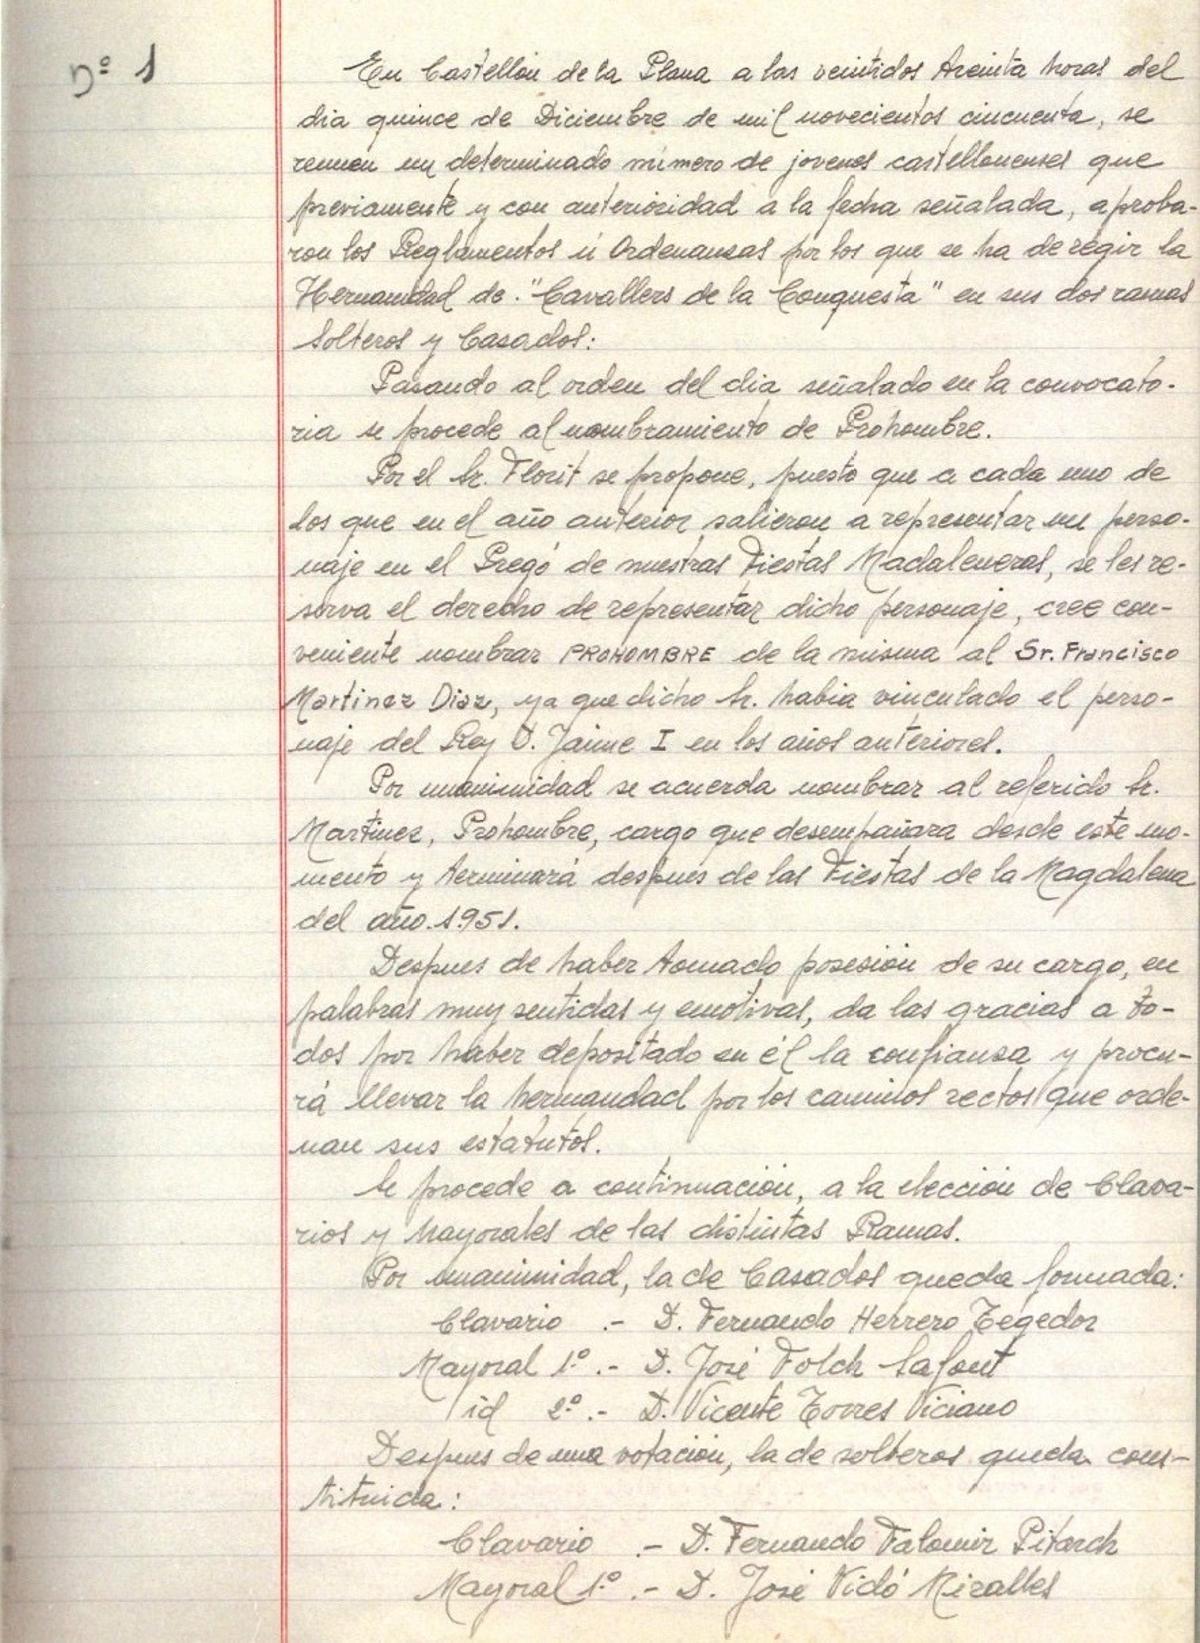 nº 1
En Castellón de la Plana a las veintidos treinta horas del
dia quince de Diciembre de mil novecientos cincuenta, se
reunen un determinado número de jovenes castellonenses que
previamente y con anterioridad a la fecha señalada, aproba-
ron los Reglamentos ú Ordenansas por los que se ha de regir la
Hermandad de "Cavallers de la Conquesta" en sus dos ramas
Solteros y Casados:
Pasando al orden del dia señalado en la convocato-
ria se procede al nombramiento de Prohombre.
Por el Sr. Florit se propone, puesto que a cada uno de
los que en el año anterior salieron a representar un perso-
naje en el Pregó de nuestras Fiestas Madaleneras, se les re-
serva el derecho de representar dicho personaje, cree con-
veniente nombrar PROHOMBRE de la misma al Sr. Francisco
Martinez Diaz, ya que dicho Sr. habia vinculado el perso-
naje del Rey D. Jaime I en los años anteriores.
Por unanimidad se acuerda nombrar al referido Sr.
Martinez, Prohombre, cargo que desempañara desde este mo-
mento y terminará después de las Fiestas de la Magdalena
del año 1.951.
Despues de haber tomado posesión de su cargo, en
palabras muy sentidas y emotivas, da las gracias a to-
dos por haber depositado en él la confiansa y procu-
rá llevar la hermandad por los caminos rectos que orde-
nan sus estatutos.
Se procede a continuación, a la elección de Clava-
rios y Mayorales de las distintas Ramas.
Por unanimidad, la de Casados queda formada:
Clavario .- D. Fernando Herrero Tegedor
Mayoral 1º .- D. José Folch Safont
id 2º .- D. Vicente Torres Viciano
Despues de una votación, la de solteros queda cons-
tituida:
Clavario .- D. Fernando Falomir Pitarch
Mayoral 1º .- D. José Vidó Miralles